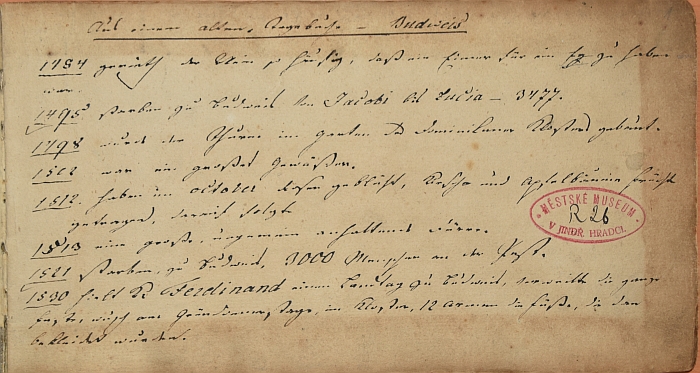 Aus einem alten Tagebuche – Budweis
1484 gerieth der Wein so häufig, daß ein Eimer für ein Ey zu haben
war.
1495 starben zu Budweis von Jacobi bis Lucia – 3477.
1498 wurde der Thurm im Garten des Dominikaner Klosters gebaut.
1502 war ein großes Gewäßer.
1512 haben im October Rosen geblüht, Kirschen und Apfelbäume Frucht
getragen, darauf folgte
1513 eine große, ungemein anhaltende Dürre.
1521 starben zu Budweis 3000 Menschen an der Pest.
1530 hielt K. Ferdinand einen Landtag zu Budweis, verweilte die ganze
Faste, wusch am Gründonnerstage, im Kloster, 12 Armen die Füße, die dann
bekleidet wurden.
MĚSTSKÉ MUSEUM
R 26
V JINDŘ. HRADCI.